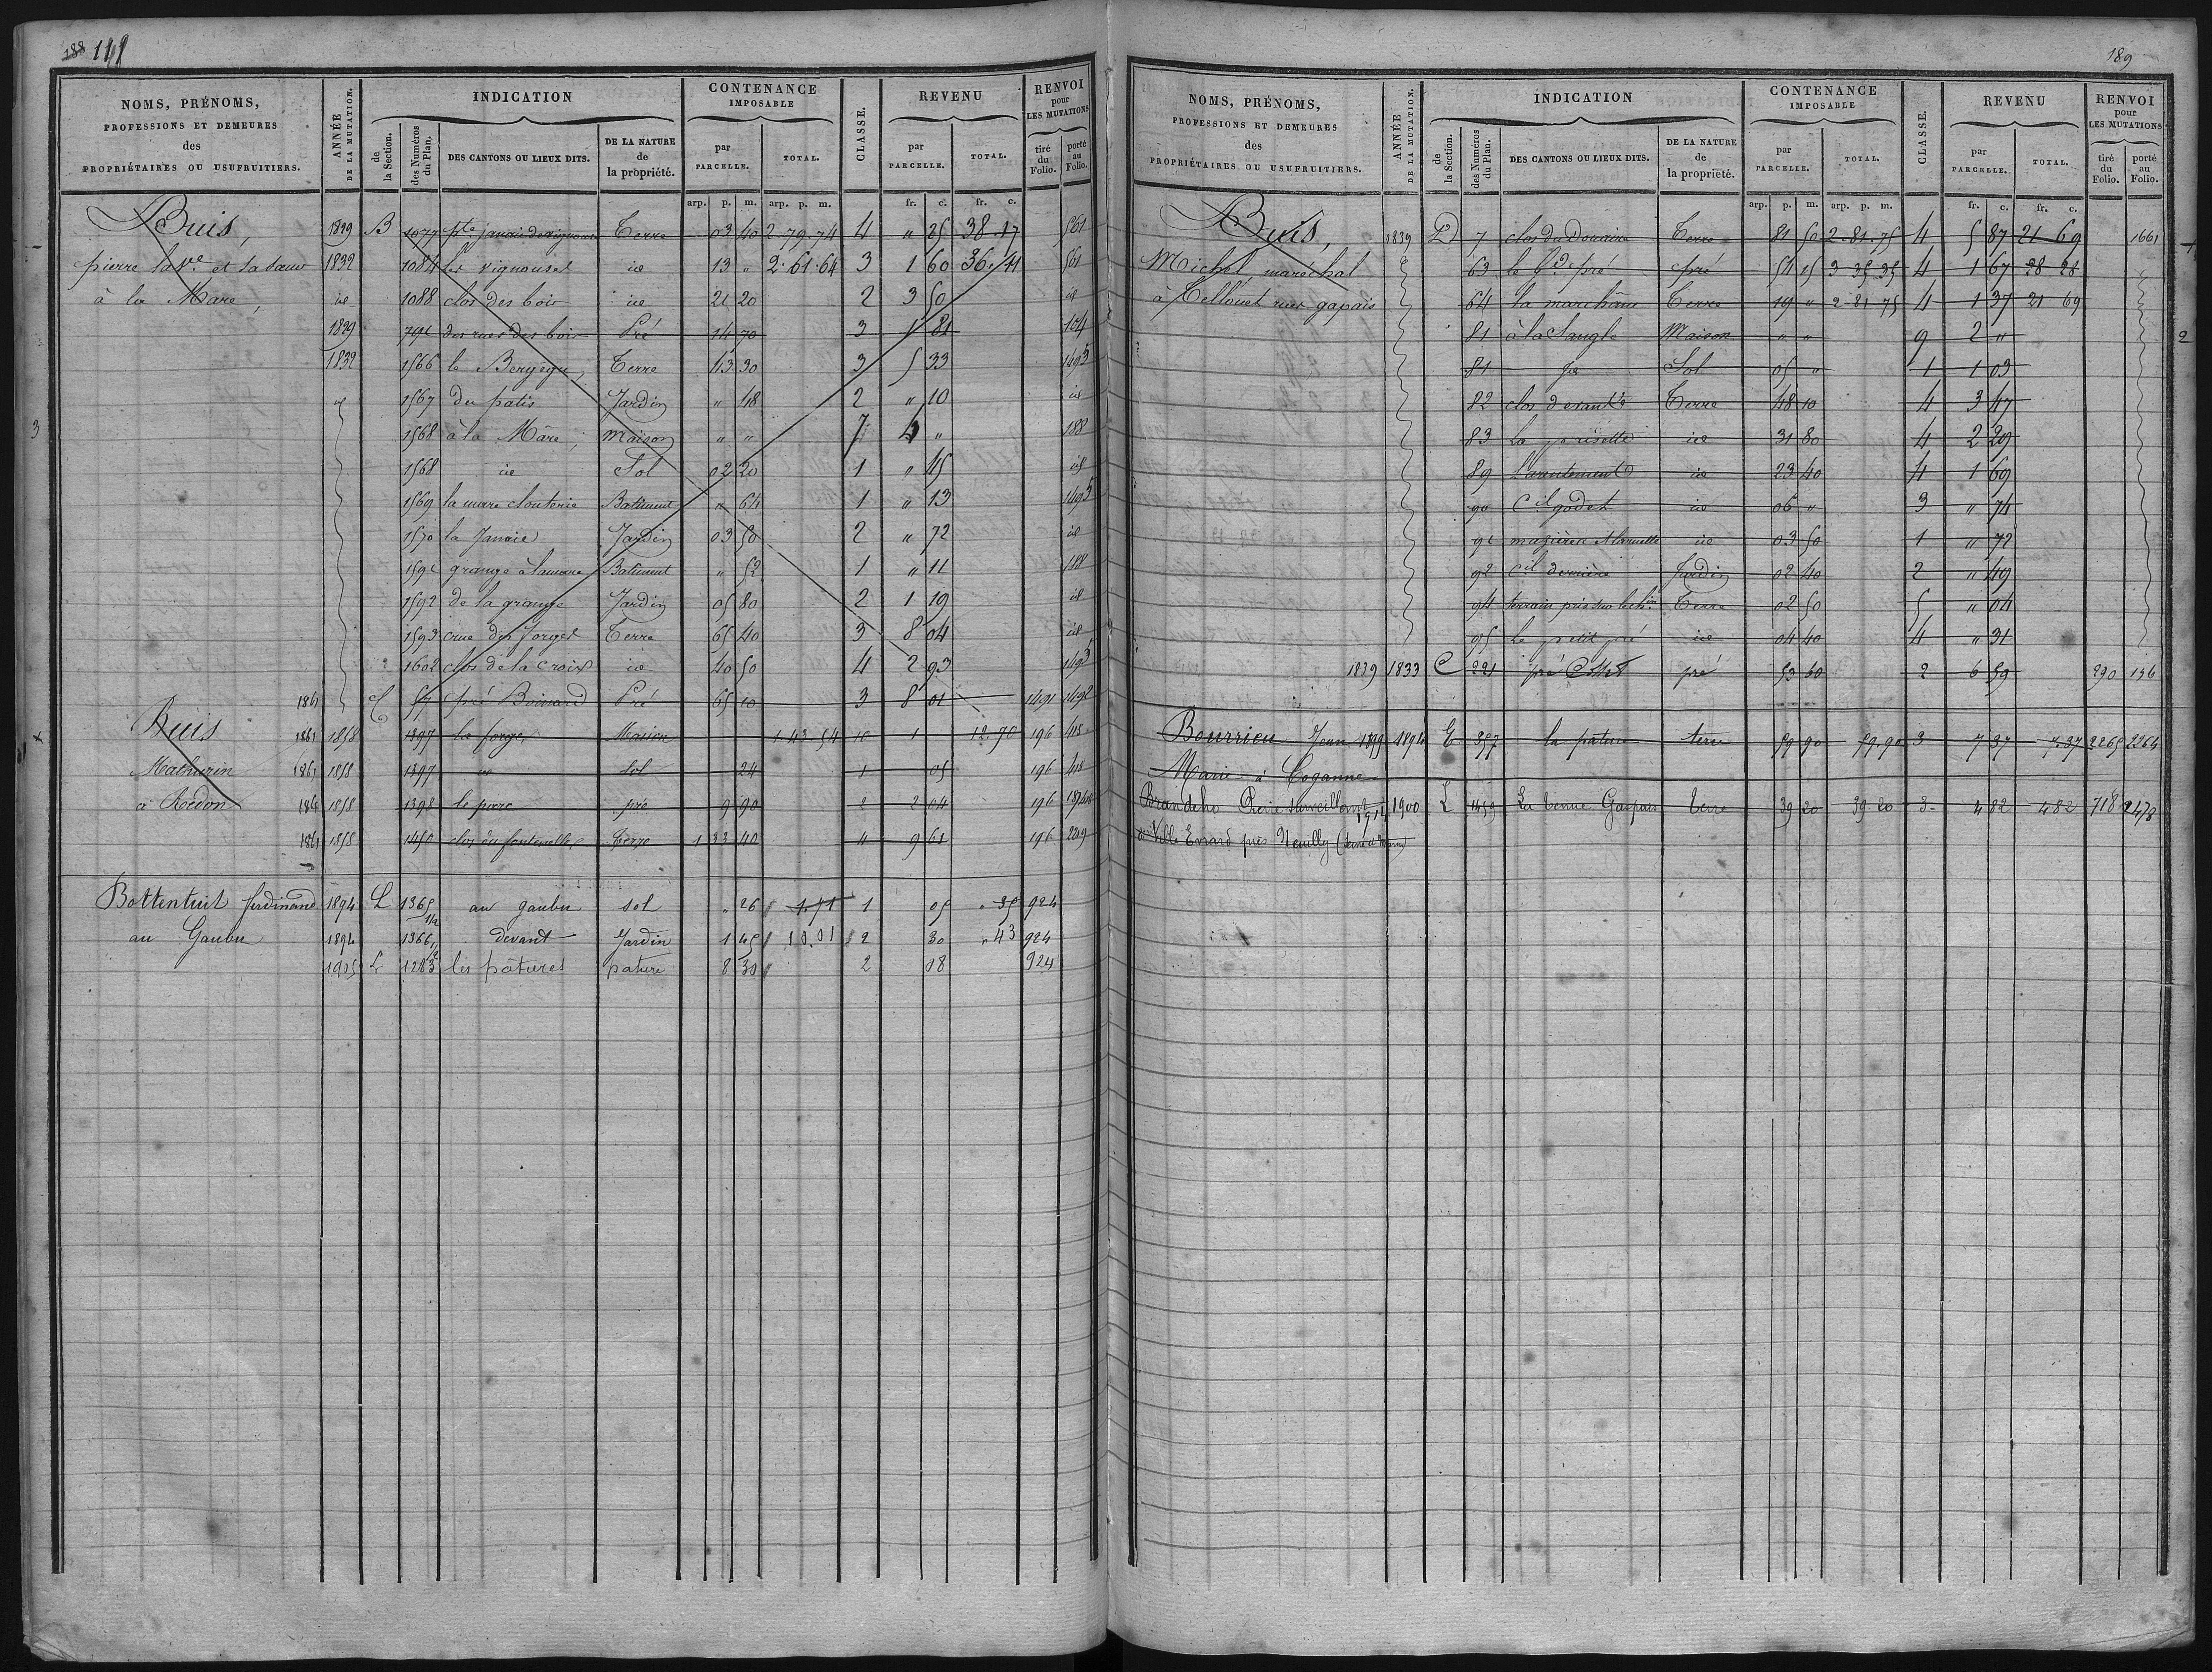 188 148
NOMS, PRÉNOMS, PROFESSIONS ET DEMEURES des PROPRIÉTAIRES OU USUFRUITIERS.
ANNÉE DE LA MUTATION.
INDICATION
de la Section.
des Numéros du Plan.
DES CANTONS OU LIEUX DITS.
DE LA NATURE de la propriété.
CONTENANCE IMPOSABLE
par PARCELLE.
TOTAL.
CLASSE.
REVENU
par PARCELLE.
TOTAL.
RENVOI pour LES MUTATIONS
tiré du Folio.
porté au Folio.
arp. p. m. arp. p. m. fr. c. fr. c.
Buis, 1829 B 1077 Terre 03 40 2.79.74 4 " 25 38.17 561
pierre la Ve et 1832 1084 Les vignouset id 13 " 2.61.64 3 1 60 36.41 561
à la Mare, id 1088 clos des bois id 21 20 2 3 50 id
1829 791 des rues des bois Pré 14 70 3 1 81 104
1832 1566 le Terre 43 30 3 5 33 1493
id 1567 du patis Jardin " 48 2 " 10 id
3 1568 à la Mare, maison " " 7 4 " 188
1568 id Sol 02 20 1 " 45 id
1569 la mare clouterie Batiment " 64 1 " 13 1493
1570 la Janaie Jardin 03 50 2 " 72 id
1591 grange à lamare Batiment " 52 1 " 11 188
1592 de la grange Jardin 05 80 2 1 19 id
1593 crue des forges Terre 65 40 3 8 04 id
1602 clos de la Croix id 40 50 4 2 93 1493
1861 54 pré Boinard Pré 65 10 3 8 01 1491 1492
Buis 1861 1858 1397 la forge Maison 1 43 54 10 1 12.70 196 418
Mathurin 1861 1858 1397 id sol 24 1 05 196 418
à Redon 1861 1858 1398 pré 9 90 2 2 04 196
1861 1858 1450 clos du fontenelles Terre 1 33 40 4 9 61 196 2209
Bottentuit ferdinand 1894 L 1365 1/2 au gaubu sol " 26 1.71 1 05 " 35 924
au Gaubu 1894 1366 1/2 devant Jardin 1 45 10.01 2 30 " 43 924
1905 L 1283 les pâtures pature 8 30 2 08 924
189
NOMS, PRÉNOMS, PROFESSIONS ET DEMEURES des PROPRIÉTAIRES OU USUFRUITIERS.
ANNÉE DE LA MUTATION.
INDICATION
de la Section.
des Numéros du Plan.
DES CANTONS OU LIEUX DITS.
DE LA NATURE de la propriété.
CONTENANCE IMPOSABLE
par PARCELLE.
TOTAL.
CLASSE.
REVENU
par PARCELLE.
TOTAL.
RENVOI pour LES MUTATIONS
tiré du Folio.
porté au Folio.
arp. p. m. arp. p. m. fr. c. fr. c.
Buis, 1839 D 7 clos du Douaire Terre 81 50 2.81.75 4 5 87 21 69 1661
Michel, maréchal 63 le Gd pré pré 54 15 3 35.35 4 1 67 28 28
à Tellouet rues gapais 64 la marchane Terre 19 " 2.81.75 4 1 37 21 69
81 à la Sangle Maison " " 9 2 " 2
81 id Sol 05 " 1 1 03
82 clos devant Terre 48 10 4 3 47
83 La id 31 80 4 2 29
89 L'arentement id 23 40 4 1 69
90 Cil godet id 06 " 3 " 74
91 id 03 50 1 " 72
92 Cil derrière Jardin 02 40 2 " 49
94 terrain pris sur le chin Terre 02 50 5 " 04
95 Le petit pré id 04 40 4 " 31
1839 1833 C 221 pré pré 53 60 2 6 59 290 156
Bourrien Jean 1899 1894 E 357 la pature terre 59 90 59.90 3 7 37 7.37 2265 2264
Marie à Coganne
Brandeho Pierre surveillant 1914 1900 L 1459 La tenue Gaspais terre 39 20 39.20 3 4 82 4 82 718 2478
à Ville Evrard près Neuilly (Seine et Marne)